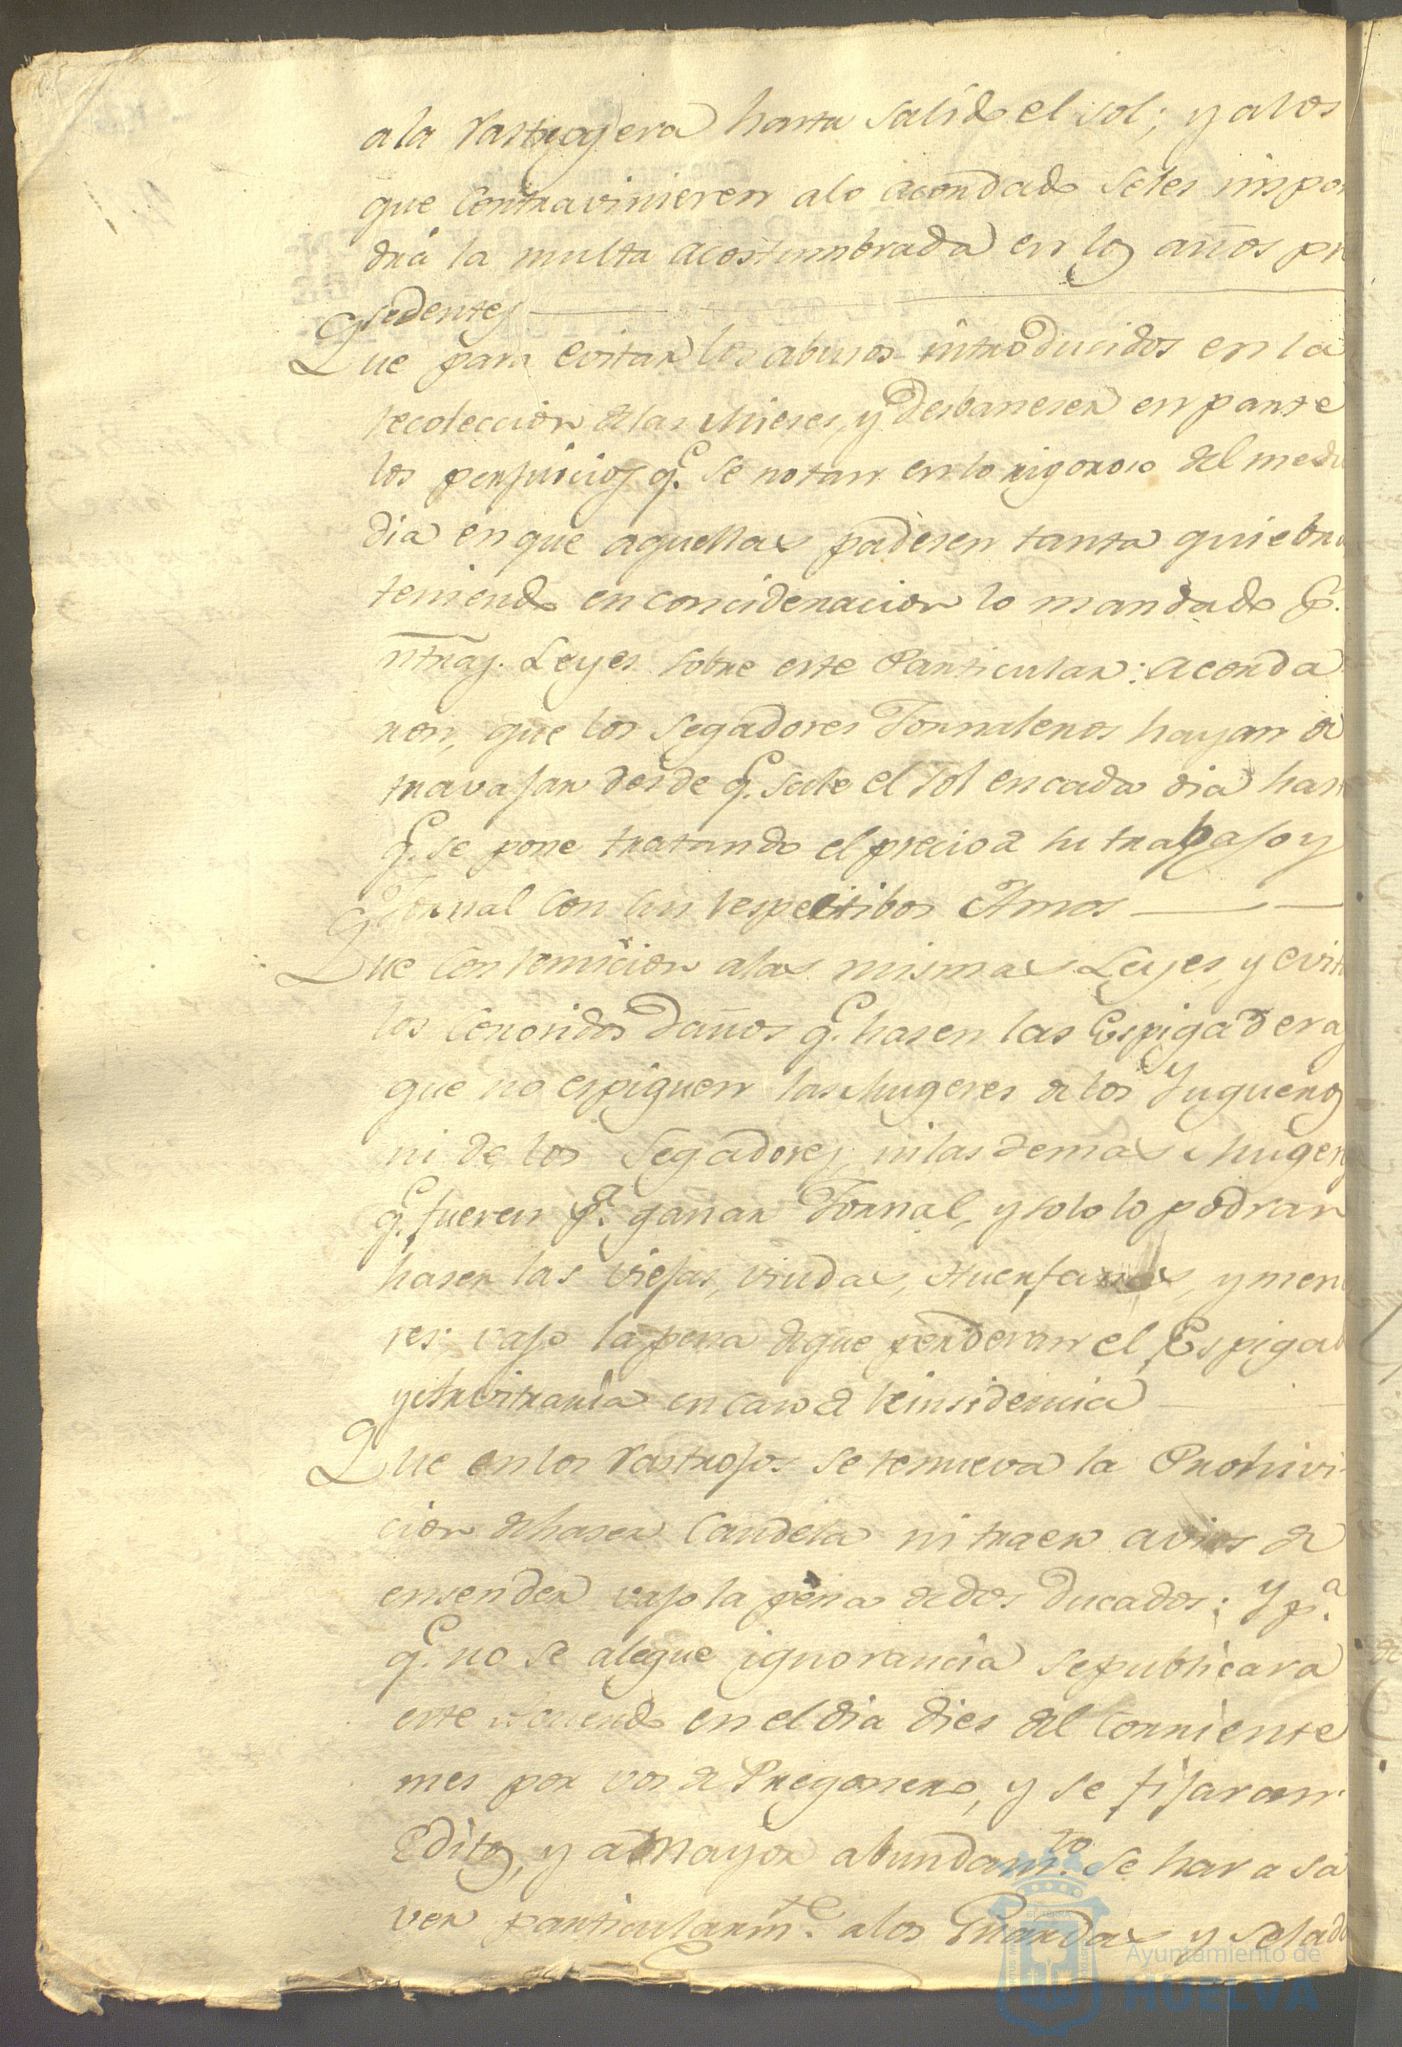 a la rastrojera hasta salido el sol; y a los
que contravinieren a lo acordado se les impon
drá la multa acostumbrada en los años pre
sedentes
Que para evitar los abusos introducidos en la
recoleccion de las Mieses, y desbaneser en parte
los perjuicios q.e se notan en lo rigoroso del medio
dia en que aquellas padesen tanta quiebra
teniendo en concideracion lo mandado p.r
ntras. Leyes sobre este Particular: acorda
ron, que los segadores Jornaleros hayan de
travajar desde q.e sale el sol en cada dia hasta
q.e se pone tratando el precio de su trabajo y
Jornal con sus respectibos Amos
Que con remicion a las mismas Leyes, y evitar
los conosidos daños q.e hasen las Espigaderas
que no espiguen las Mugeres de los Yugueros
ni de los Segadores, ni las demas Mugeres
q.e fueren p.a ganar Jornal, y solo lo podran
haser las viejas, viudas, Huerfanas, y meno
res: vajo la pena de que perderan el Espigado
y arvitraria en caso de reinsidencia
Que en los rastrojos se renueva la Prohivi
cion de haser Candela ni traer avios de
ensender vajo la pena de dos ducados: Y p.a
q.e no se alegue ignorancia se publicara
este Acuerdo en el dia dies del Corriente
mes por vos de Pregonero, y se fijaran
Editos, y a Mayor abundam.to se hara sa
ver particularm.te a los Guardas y Selado
Ayuntamiento de
HUELVA